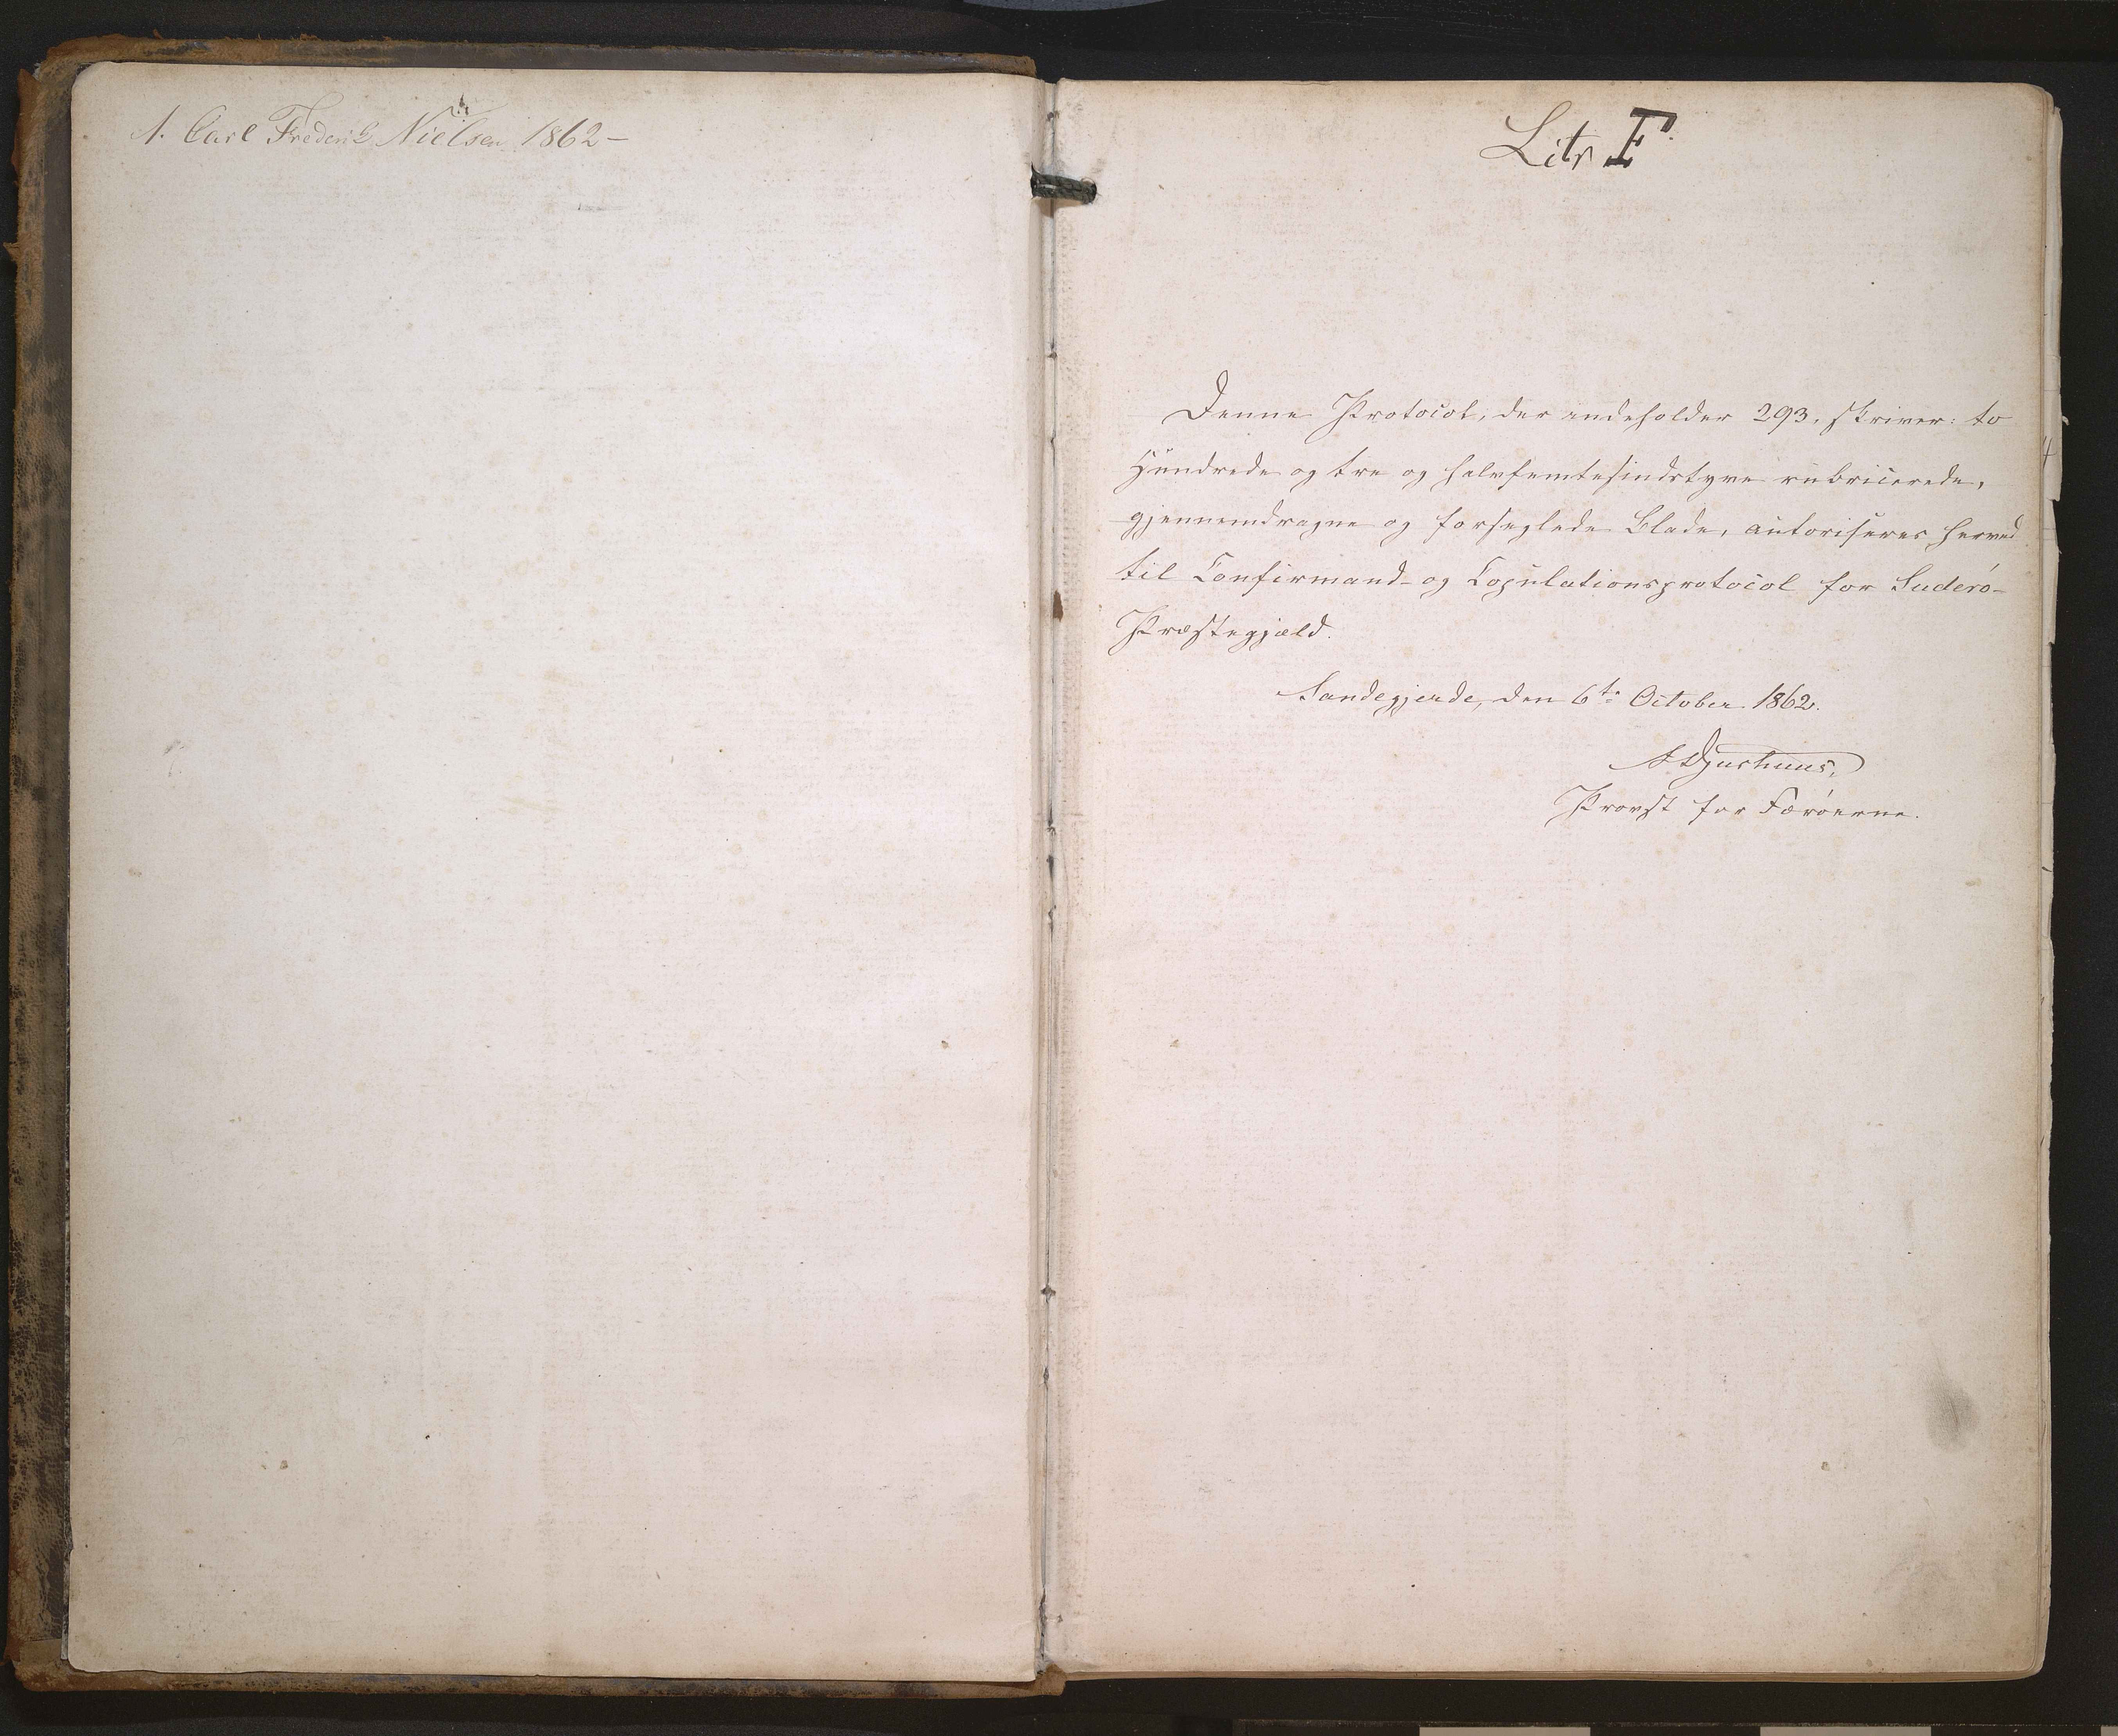 1. Carl Frederik Nielsen 1862 –
Litr F.
Denne Protocol, der indeholder 293, skriver: to
Hundrede og tre og halvfemtesindstyve rubricerede,
gjennemdragne og forseglede Blade, autoriseres herved
til Confirmand- og Copulationsprotocol for Suderö-
Præstegjæld.
Sandegjerde, den 6te October 1862.
A Djurhuus,
Provst for Færöerne.